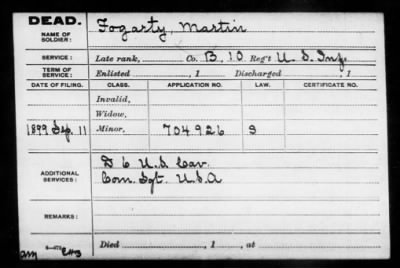 DEAD.
NAME OF SOLDIER: Fogarty, Martin
SERVICE: Late rank, Co. B, 10 Reg't U. S. Inf.
TERM OF SERVICE: Enlisted , 1 Discharged , 1
DATE OF FILING. CLASS. APPLICATION NO. LAW. CERTIFICATE NO.
Invalid,
Widow,
1899 Sep. 11 Minor, 704926 S
ADDITIONAL SERVICES: D 6 U.S. Cav.
Com. Sgt. U.S.A
REMARKS:
Died , 1 , at